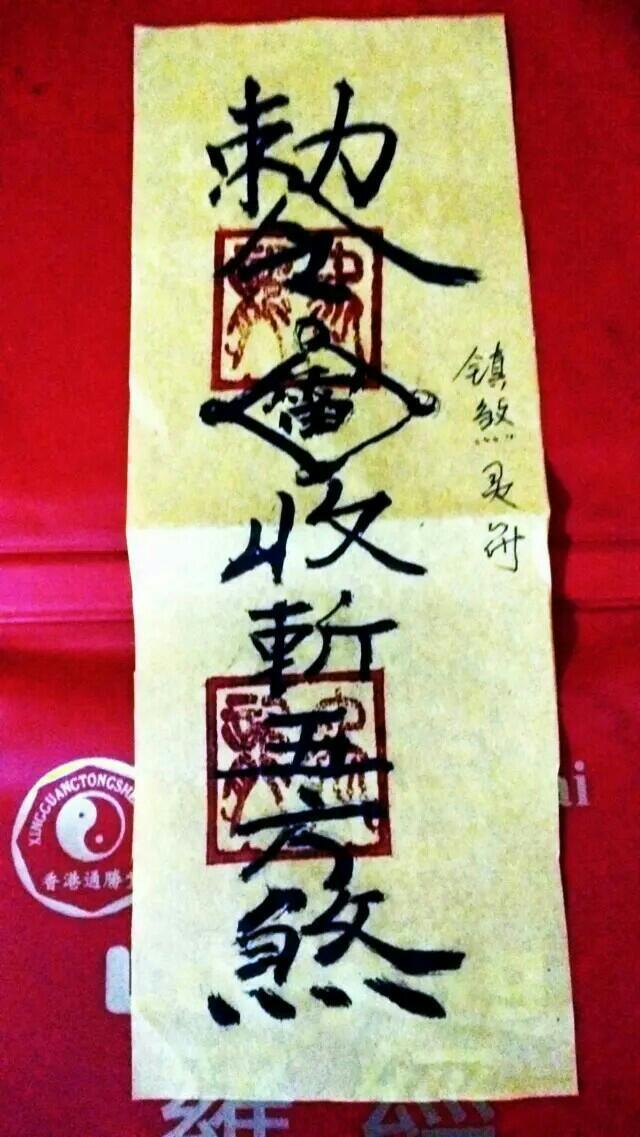 勅令雷收斬五方煞
镇煞灵符
XINGGUANGTONGSHE
香港通勝
羅經